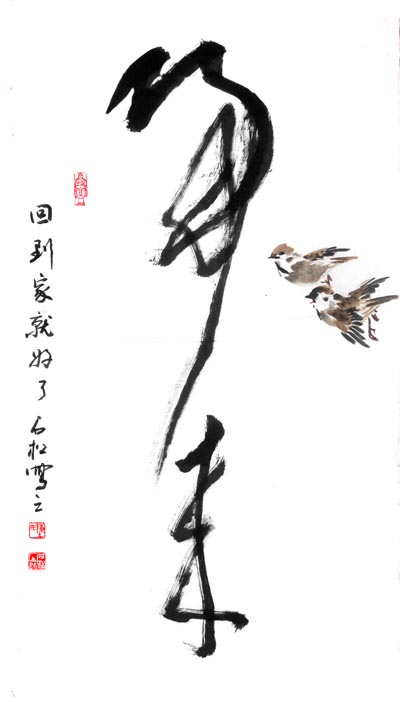 歸来
回到家就好了 石松寫之